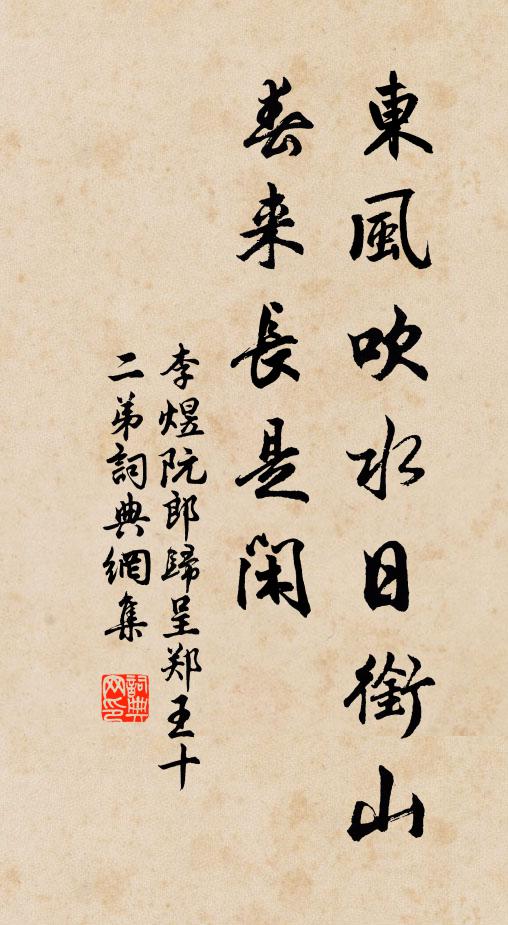 東風吹水日銜山
春来長是閑
李煜阮郎歸呈郑王十
二弟詞典網集
詞典网印